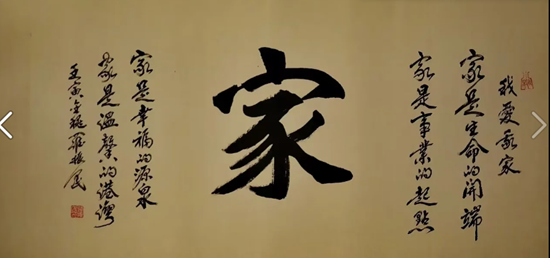 我愛我家
家是生命的開端
家是事業的起點
家
家是幸福的源泉
家是溫馨的港灣
壬寅金秋羅振民